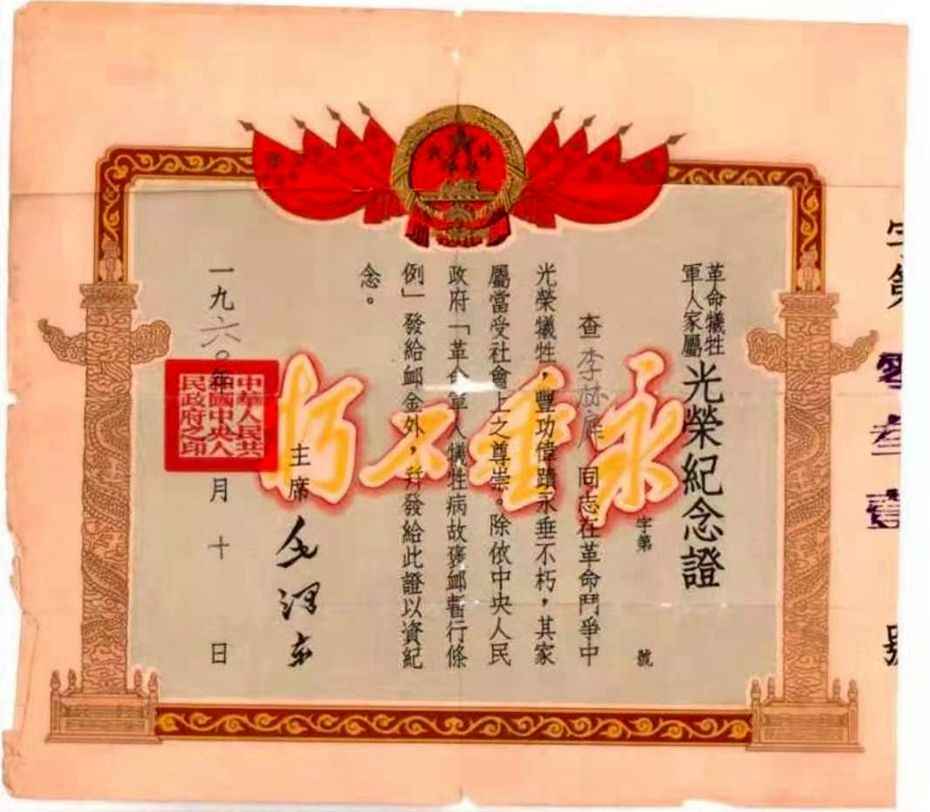 字第 零叁壹 號
革命犧牲
軍人家屬
光榮紀念證
字第 號
查李 同志在革命鬥爭中
光榮犧牲，豐功偉蹟永垂不朽，其家
屬當受社會上之尊崇。除依中央人民
政府「革命軍人犧牲病故褒卹暫行條
例」發給卹金外，并發給此證以資紀
念。
永垂不朽
主席 毛澤東
一九六〇年 月十日
中華人民共
和國中央人
民政府之印